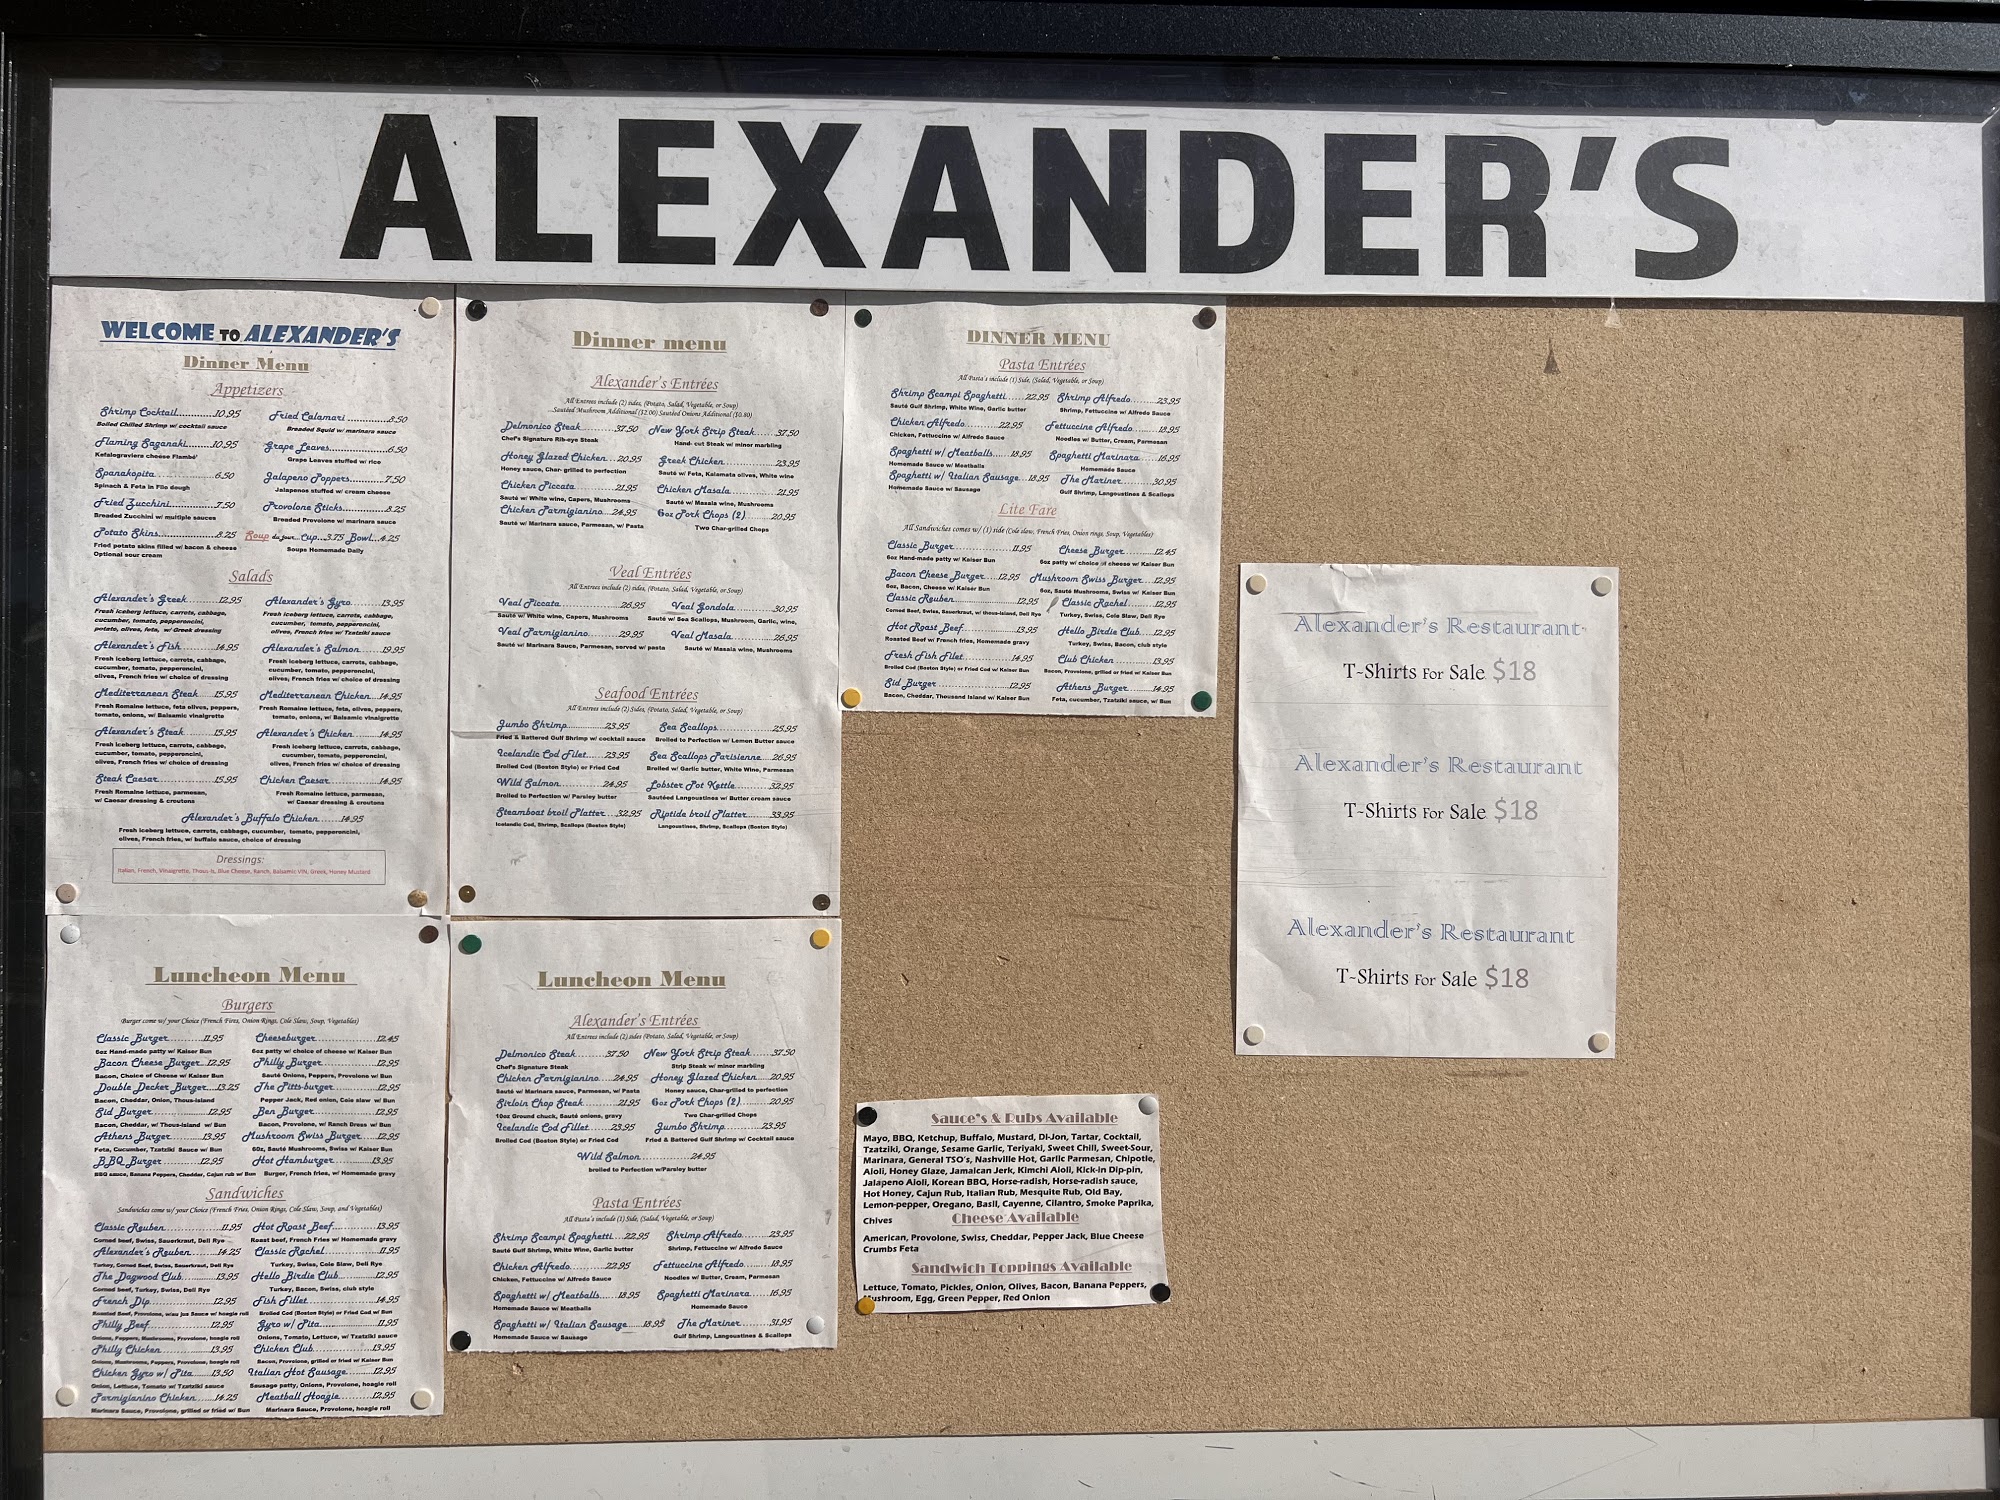 ALEXANDER'S
WELCOME TO ALEXANDER'S
Dinner Menu
Appetizers
Shrimp Cocktail..........10.95
Boiled Chilled Shrimp w/ cocktail sauce
Fried Calamari ............8.50
Breaded Squid w/ marinara sauce
Flaming Saganaki..........10.95
Kefalograviera cheese Flambé'
Grape Leaves..................6.50
Grape Leaves stuffed w/ rice
Spanakopita..................6.50
Spinach & Feta in Filo dough
Jalapeno Poppers...........7.50
Jalapenos stuffed w/ cream cheese
Fried Zucchini..............7.50
Breaded Zucchini w/ multiple sauces
Provolone Sticks............8.25
Breaded Provolone w/ marinara sauce
Potato Skins.................8.25
Fried potato skins filled w/ bacon & cheese
Optional sour cream
Soup du jour... Cup...3.75 Bowl...4.25
Soups Homemade Daily
Salads
Alexander's Greek...........12.95
Fresh iceberg lettuce, carrots, cabbage,
cucumber, tomato, pepperoncini,
potato, olives, feta, w/ Greek dressing
Alexander's Gyro..............13.95
Fresh iceberg lettuce, carrots, cabbage,
cucumber, tomato, pepperoncini,
olives, French fries w/ Tzatziki sauce
Alexander's Fish..............14.95
Fresh iceberg lettuce, carrots, cabbage,
cucumber, tomato, pepperoncini,
olives, French fries w/ choice of dressing
Alexander's Salmon...........19.95
Fresh iceberg lettuce, carrots, cabbage,
cucumber, tomato, pepperoncini,
olives, French fries w/ choice of dressing
Mediterranean Steak.....15.95
Fresh Romaine lettuce, feta olives, peppers,
tomato, onions, w/ Balsamic vinaigrette
Mediterranean Chicken...14.95
Fresh Romaine lettuce, feta, olives, peppers,
tomato, onions, w/ Balsamic vinaigrette
Alexander's Steak............15.95
Fresh iceberg lettuce, carrots, cabbage,
cucumbers, tomato, pepperoncini,
olives, French fries w/ choice of dressing
Alexander's Chicken..........14.95
Fresh iceberg lettuce, carrots, cabbage,
cucumbers, tomato, pepperoncini,
olives, French fries w/ choice of dressing
Steak Caesar..................15.95
Fresh Romaine lettuce, parmesan,
w/ Caesar dressing & croutons
Chicken Caesar...............14.95
Fresh Romaine lettuce, parmesan,
w/ Caesar dressing & croutons
Alexander's Buffalo Chicken........14.95
Fresh iceberg lettuce, carrots, cabbage, cucumber, tomato, pepperoncini,
olives, French fries, w/ buffalo sauce, choice of dressing
Dressings:
Italian, French, Vinaigrette, Thous-Is, Blue Cheese, Ranch, Balsamic VIN, Greek, Honey Mustard
Dinner menu
Alexander's Entrées
All Entrees include (2) sides, (Potato, Salad, Vegetable, or Soup)
Sautéed Mushroom Additional ($2.00) Sautéed Onions Additional ($0.80)
Delmonico Steak...........37.50
Chef's Signature Rib-eye Steak
New York Strip Steak......37.50
Hand- cut Steak w/ minor marbling
Honey Glazed Chicken...20.95
Honey sauce, Char- grilled to perfection
Greek Chicken...............23.95
Sauté w/ Feta, Kalamata olives, White wine
Chicken Piccata............21.95
Sauté w/ White wine, Capers, Mushrooms
Chicken Masala..............21.95
Sauté w/ Masala wine, Mushrooms
Chicken Parmigianino.....24.95
Sauté w/ Marinara sauce, Parmesan, w/ Pasta
6oz Pork Chops (2)..........20.95
Two Char-grilled Chops
Veal Entrées
All Entrees include (2) sides, (Potato, Salad, Vegetable, or Soup)
Veal Piccata.................26.95
Sauté w/ White wine, Capers, Mushrooms
Veal Gondola................30.95
Sauté w/ Sea Scallops, Mushroom, Garlic, wine,
Veal Parmigianino.........29.95
Sauté w/ Marinara Sauce, Parmesan, served w/ pasta
Veal Masala..................26.95
Sauté w/ Masala wine, Mushrooms
Seafood Entrées
All Entrees include (2) Sides, (Potato, Salad, Vegetable, or Soup)
Jumbo Shrimp................23.95
Fried & Battered Gulf Shrimp w/ cocktail sauce
Sea Scallops...................25.95
Broiled to Perfection w/ Lemon Butter sauce
Icelandic Cod Filet..........23.95
Broiled Cod (Boston Style) or Fried Cod
Sea Scallops Parisienne...26.95
Broiled w/ Garlic butter, White Wine, Parmesan
Wild Salmon..................24.95
Broiled to Perfection w/ Parsley butter
Lobster Pot Kettle...........32.95
Sautéed Langoustines w/ Butter cream sauce
Steamboat broil Platter...32.95
Icelandic Cod, Shrimp, Scallops (Boston Style)
Riptide broil Platter........33.95
Langoustines, Shrimp, Scallops (Boston Style)
DINNER MENU
Pasta Entrées
All Pasta's include (1) Side, (Salad, Vegetable, or Soup)
Shrimp Scampi Spaghetti.....22.95
Sauté Gulf Shrimp, White Wine, Garlic butter
Shrimp Alfredo.............23.95
Shrimp, Fettuccine w/ Alfredo Sauce
Chicken Alfredo..................22.95
Chicken, Fettuccine w/ Alfredo Sauce
Fettuccine Alfredo.........18.95
Noodles w/ Butter, Cream, Parmesan
Spaghetti w/ Meatballs........18.95
Homemade Sauce w/ Meatballs
Spaghetti Marinara.........16.95
Homemade Sauce
Spaghetti w/ Italian Sausage...18.95
Homemade Sauce w/ Sausage
The Mariner.................30.95
Gulf Shrimp, Langoustines & Scallops
Lite Fare
All Sandwiches comes w/ (1) side (Cole slaw, French Fries, Onion rings, Soup, Vegetables)
Classic Burger...............11.95
6oz Hand-made patty w/ Kaiser Bun
Cheese Burger................12.45
6oz patty w/ choice of cheese w/ Kaiser Bun
Bacon Cheese Burger....12.95
6oz, Bacon, Cheese w/ Kaiser Bun
Mushroom Swiss Burger...12.95
6oz, Sauté Mushrooms, Swiss w/ Kaiser Bun
Classic Reuben..............12.95
Corned Beef, Swiss, Sauerkraut, w/ thous-island, Deli Rye
Classic Rachel...............12.95
Turkey, Swiss, Cole Slaw, Deli Rye
Hot Roast Beef..............13.95
Roasted Beef w/ French fries, Homemade gravy
Hello Birdie Club............12.95
Turkey, Swiss, Bacon, club style
Fresh Fish Filet.............14.95
Broiled Cod (Boston Style) or Fried Cod w/ Kaiser Bun
Club Chicken.................13.95
Bacon, Provolone, grilled or fried w/ Kaiser Bun
Sid Burger...................12.95
Bacon, Cheddar, Thousand Island w/ Kaiser Bun
Athens Burger...............14.95
Feta, cucumber, Tzatziki sauce, w/ Bun
Alexander's Restaurant
T-Shirts For Sale $18
Alexander's Restaurant
T-Shirts For Sale $18
Alexander's Restaurant
T-Shirts For Sale $18
Luncheon Menu
Burgers
Burger come w/ your Choice (French Fires, Onion Rings, Cole Slaw, Soup, Vegetables)
Classic Burger............11.95
6oz Hand-made patty w/ Kaiser Bun
Cheeseburger.................12.45
6oz patty w/ choice of cheese w/ Kaiser Bun
Bacon Cheese Burger..12.95
Bacon, Choice of Cheese w/ Kaiser Bun
Philly Burger..................12.95
Sauté Onions, Peppers, Provolone w/ Bun
Double Decker Burger...13.25
Bacon, Cheddar, Onion, Thous-island
The Pitts-burger.............12.95
Pepper Jack, Red onion, Cole slaw w/ Bun
Sid Burger..................12.95
Bacon, Cheddar, w/ Thous-Island w/ Bun
Ben Burger....................12.95
Bacon, Provolone, w/ Ranch Dress w/ Bun
Athens Burger............13.95
Feta, Cucumber, Tzatziki Sauce w/ Bun
Mushroom Swiss Burger...12.95
6Oz, Sauté Mushrooms, Swiss w/ Kaiser Bun
BBQ Burger...............12.95
BBQ sauce, Banana Peppers, Cheddar, Cajun rub w/ Bun
Hot Hamburger..............13.95
Burger, French fries, w/ Homemade gravy
Sandwiches
Sandwiches come w/ your Choice (French Fries, Onion Rings, Cole Slaw, Soup, and Vegetables)
Classic Reuben.............11.95
Corned beef, Swiss, Sauerkraut, Deli Rye
Hot Roast Beef...............13.95
Roast beef, French Fries w/ Homemade gravy
Alexander's Reuben......14.25
Turkey, Corned Beef, Swiss, Sauerkraut, Deli Rye
Classic Rachel................11.95
Turkey, Swiss, Cole Slaw, Deli Rye
The Dagwood Club........13.95
Corned beef, Turkey, Swiss, Deli Rye
Hello Birdie Club............12.95
Turkey, Bacon, Swiss, club style
French Dip..................12.95
Roasted Beef, Provolone, w/au jus Sauce w/ hoagie roll
Fish Fillet......................14.95
Broiled Cod (Boston Style) or Fried Cod w/ Bun
Philly Beef..................12.95
Onions, Peppers, Mushrooms, Provolone, hoagie roll
Gyro w/ Pita...................11.95
Onions, Tomato, Lettuce, w/ Tzatziki sauce
Philly Chicken.............13.95
Onions, Mushrooms, Peppers, Provolone, w/ hoagie roll
Chicken Club..................13.95
Bacon, Provolone, grilled or fried w/ Kaiser Bun
Chicken Gyro w/ Pita.....13.50
Onion, Lettuce, Tomato w/ Tzatziki sauce
Italian Hot Sausage.........12.95
Sausage patty, Onions, Provolone, hoagie roll
Parmigianino Chicken....14.25
Marinara Sauce, Provolone, grilled or fried w/ Bun
Meatball Hoagie.............12.95
Marinara Sauce, Provolone, hoagie roll
Luncheon Menu
Alexander's Entrées
All Entrees include (2) sides (Potato, Salad, Vegetable, or Soup)
Delmonico Steak..........37.50
Chef's Signature Steak
New York Strip Steak......37.50
Strip Steak w/ minor marbling
Chicken Parmigianino....24.95
Sauté w/ Marinara sauce, Parmesan, w/ Pasta
Honey Glazed Chicken....20.95
Honey sauce, Char-grilled to perfection
Sirloin Chop Steak.........21.95
10oz Ground chuck, Sauté onions, gravy
6oz Pork Chops (2)..........20.95
Two Char-grilled Chops
Icelandic Cod Fillet........23.95
Broiled Cod (Boston Style) or Fried Cod
Jumbo Shrimp...............23.95
Fried & Battered Gulf Shrimp w/ Cocktail sauce
Wild Salmon................24.95
broiled to Perfection w/Parsley butter
Pasta Entrées
All Pasta's include (1) Side, (Salad, Vegetable, or Soup)
Shrimp Scampi Spaghetti...22.95
Sauté Gulf Shrimp, White Wine, Garlic butter
Shrimp Alfredo..............23.95
Shrimp, Fettuccine w/ Alfredo Sauce
Chicken Alfredo................22.95
Chicken, Fettuccine w/ Alfredo Sauce
Fettuccine Alfredo..........18.95
Noodles w/ Butter, Cream, Parmesan
Spaghetti w/ Meatballs.....18.95
Homemade Sauce w/ Meatballs
Spaghetti Marinara.........16.95
Homemade Sauce
Spaghetti w/ Italian Sausage.....18.95
Homemade Sauce w/ Sausage
The Mariner..................31.95
Gulf Shrimp, Langoustines & Scallops
Sauce's & Rubs Available
Mayo, BBQ, Ketchup, Buffalo, Mustard, Di-Jon, Tartar, Cocktail,
Tzatziki, Orange, Sesame Garlic, Teriyaki, Sweet Chill, Sweet-Sour,
Marinara, General TSO's, Nashville Hot, Garlic Parmesan, Chipotle,
Aioli, Honey Glaze, Jamaican Jerk, Kimchi Aioli, Kick-in Dip-pin,
Jalapeno Aioli, Korean BBQ, Horse-radish, Horse-radish sauce,
Hot Honey, Cajun Rub, Italian Rub, Mesquite Rub, Old Bay,
Lemon-pepper, Oregano, Basil, Cayenne, Cilantro, Smoke Paprika,
Chives
Cheese Available
American, Provolone, Swiss, Cheddar, Pepper Jack, Blue Cheese
Crumbs Feta
Sandwich Toppings Available
Lettuce, Tomato, Pickles, Onion, Olives, Bacon, Banana Peppers,
Mushroom, Egg, Green Pepper, Red Onion